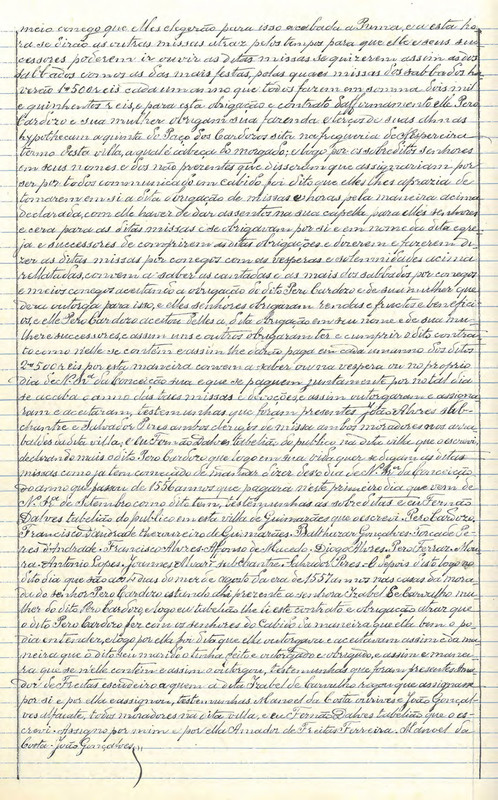 meio conego que elles elegerão para isso acabada a Prima, e a esta ho
ra se dirão as outras missas atraz pelos tempos para que elle e seus suc
cessores poderem ir ouvir as ditas missas se quizerem assim as dos
sabbados como as das mais festas, pelas quaes missas dos sabbados ha
verão 1$500 reis cada um anno que todos fazem em somma dois mil
e quinhentos reis, e para esta obrigação e contrato disseram elle Pero
Cardozo e sua mulher obrigam sua fazenda e terços de suas almas
hypothecam a quinta de Paço dos Cardozos sita na freguezia de
termo desta villa, a qual é cabeça do morgado; e logo por os sobreditos senhores
em seus nomes e dos não prezentes que disserem que assignariam por
ser por todos communicado em cabido foi dito que elles lhes aprazia de
tomarem em si a dita obrigação de missas e horas pela maneira acima
declarada, com elle haver de dar assentos na sua capella para elles senhores
e cera para as ditas missas e se obrigaram por si e em nome da dita egre
ja e successores de comprirem as ditas obrigações e dizerem e fazerem di
zer as ditas missas por conegos com as vesperas e solemnidades acima
relatadas, convem a saber as cantadas e as mais dos sabbados por conegos
e meios conegos acceitando a obrigação do dito Pero Cardozo e de sua mulher que
dera outorga para isso, e elles senhores obrigaram rendas e fructos e benefici
os, e elle Pero Cardozo aceitou delles a dita obrigação em seu nome e de sua mu
lher e successores, e assim uns e outros obrigaram ter e cumprir o dito contra
to como nelle se contem e assim lhe darão paga em cada um anno dos ditos
2$500 reis por esta maneira convem a saber ou na vespera ou no proprio
dia de N. Sr.ª da Conceição sua e que se paguem juntamente por no tal dia
se acaba o anno das taes missas e devoções, e assim outorgaram e assigna
ram e aceitaram, testemunhas que foram presentes João Alvres sub-
chantre e Salvador Pires ambos clerigos de missa ambos moradores nos arra
baldes da dita villa, e eu Fernão Dalves tabelião do publico na dita villa que o escrevi,
declarando mais o dito Pero Cardozo que logo em sua vida quer se digam as ditas
missas como ja tem começado de mandar dizer desd'o dia de N. Sr.ª da Conceição
do anno que passou de 1556 annos que pagará neste primeiro dia que vem de
N. Sr.ª de Setembro como dito tem, testemunhas as sobreditas e eu Fernão
Dalves tabelião do publico em esta villa de Guimarães que o escrevi. Pero Cardozo.
Francisco d'Andrade thezoureiro de Guimarães. Balthazar Gonçalves. Pe
res d'Andrade. Francisco Alvres. Affonso de Macedo. Diogo Alvres. Pero Ferraz. Mou
ra. Antonio Lopes. Joannes Alvares subchantre. Salvador Pires. E depois disto logo no
dito dia que são aos dias do mez de agosto da era de 1557 annos nas casas da mora
da do senhor Pero Cardozo estando ahi prezente a senhora Izabel de Carvalho mu
lher do dito Pero Cardozo e logo eu tabelião lhe li este contrato e obrigação atraz que
o dito Pero Cardozo fez com os senhores do Cabido da maneira que elle bem o po
dia entender, e logo por ella foi dito que ella outorgava e aceitava assim e da ma
neira que o dito seu marido o tinha feito e outorgado e obrigado, e assim e manei
ra que se nelle contem e assim o outorgou, testemunhas que foram presentes Ama
dor de Freitas escudeiro a quem a dita Izabel de Carvalho rogou que assignasse
por si e por ella e assignou, testemunhas Manoel da Costa ourives e João Gonçal
ves alfaiate, todos moradores na dita villa, e eu Fernão Dalves tabelião que o es
crevi. Assigno por mim e por ella Amador de Freitas Ferreira. Manoel da
Costa. João Gonçalves.